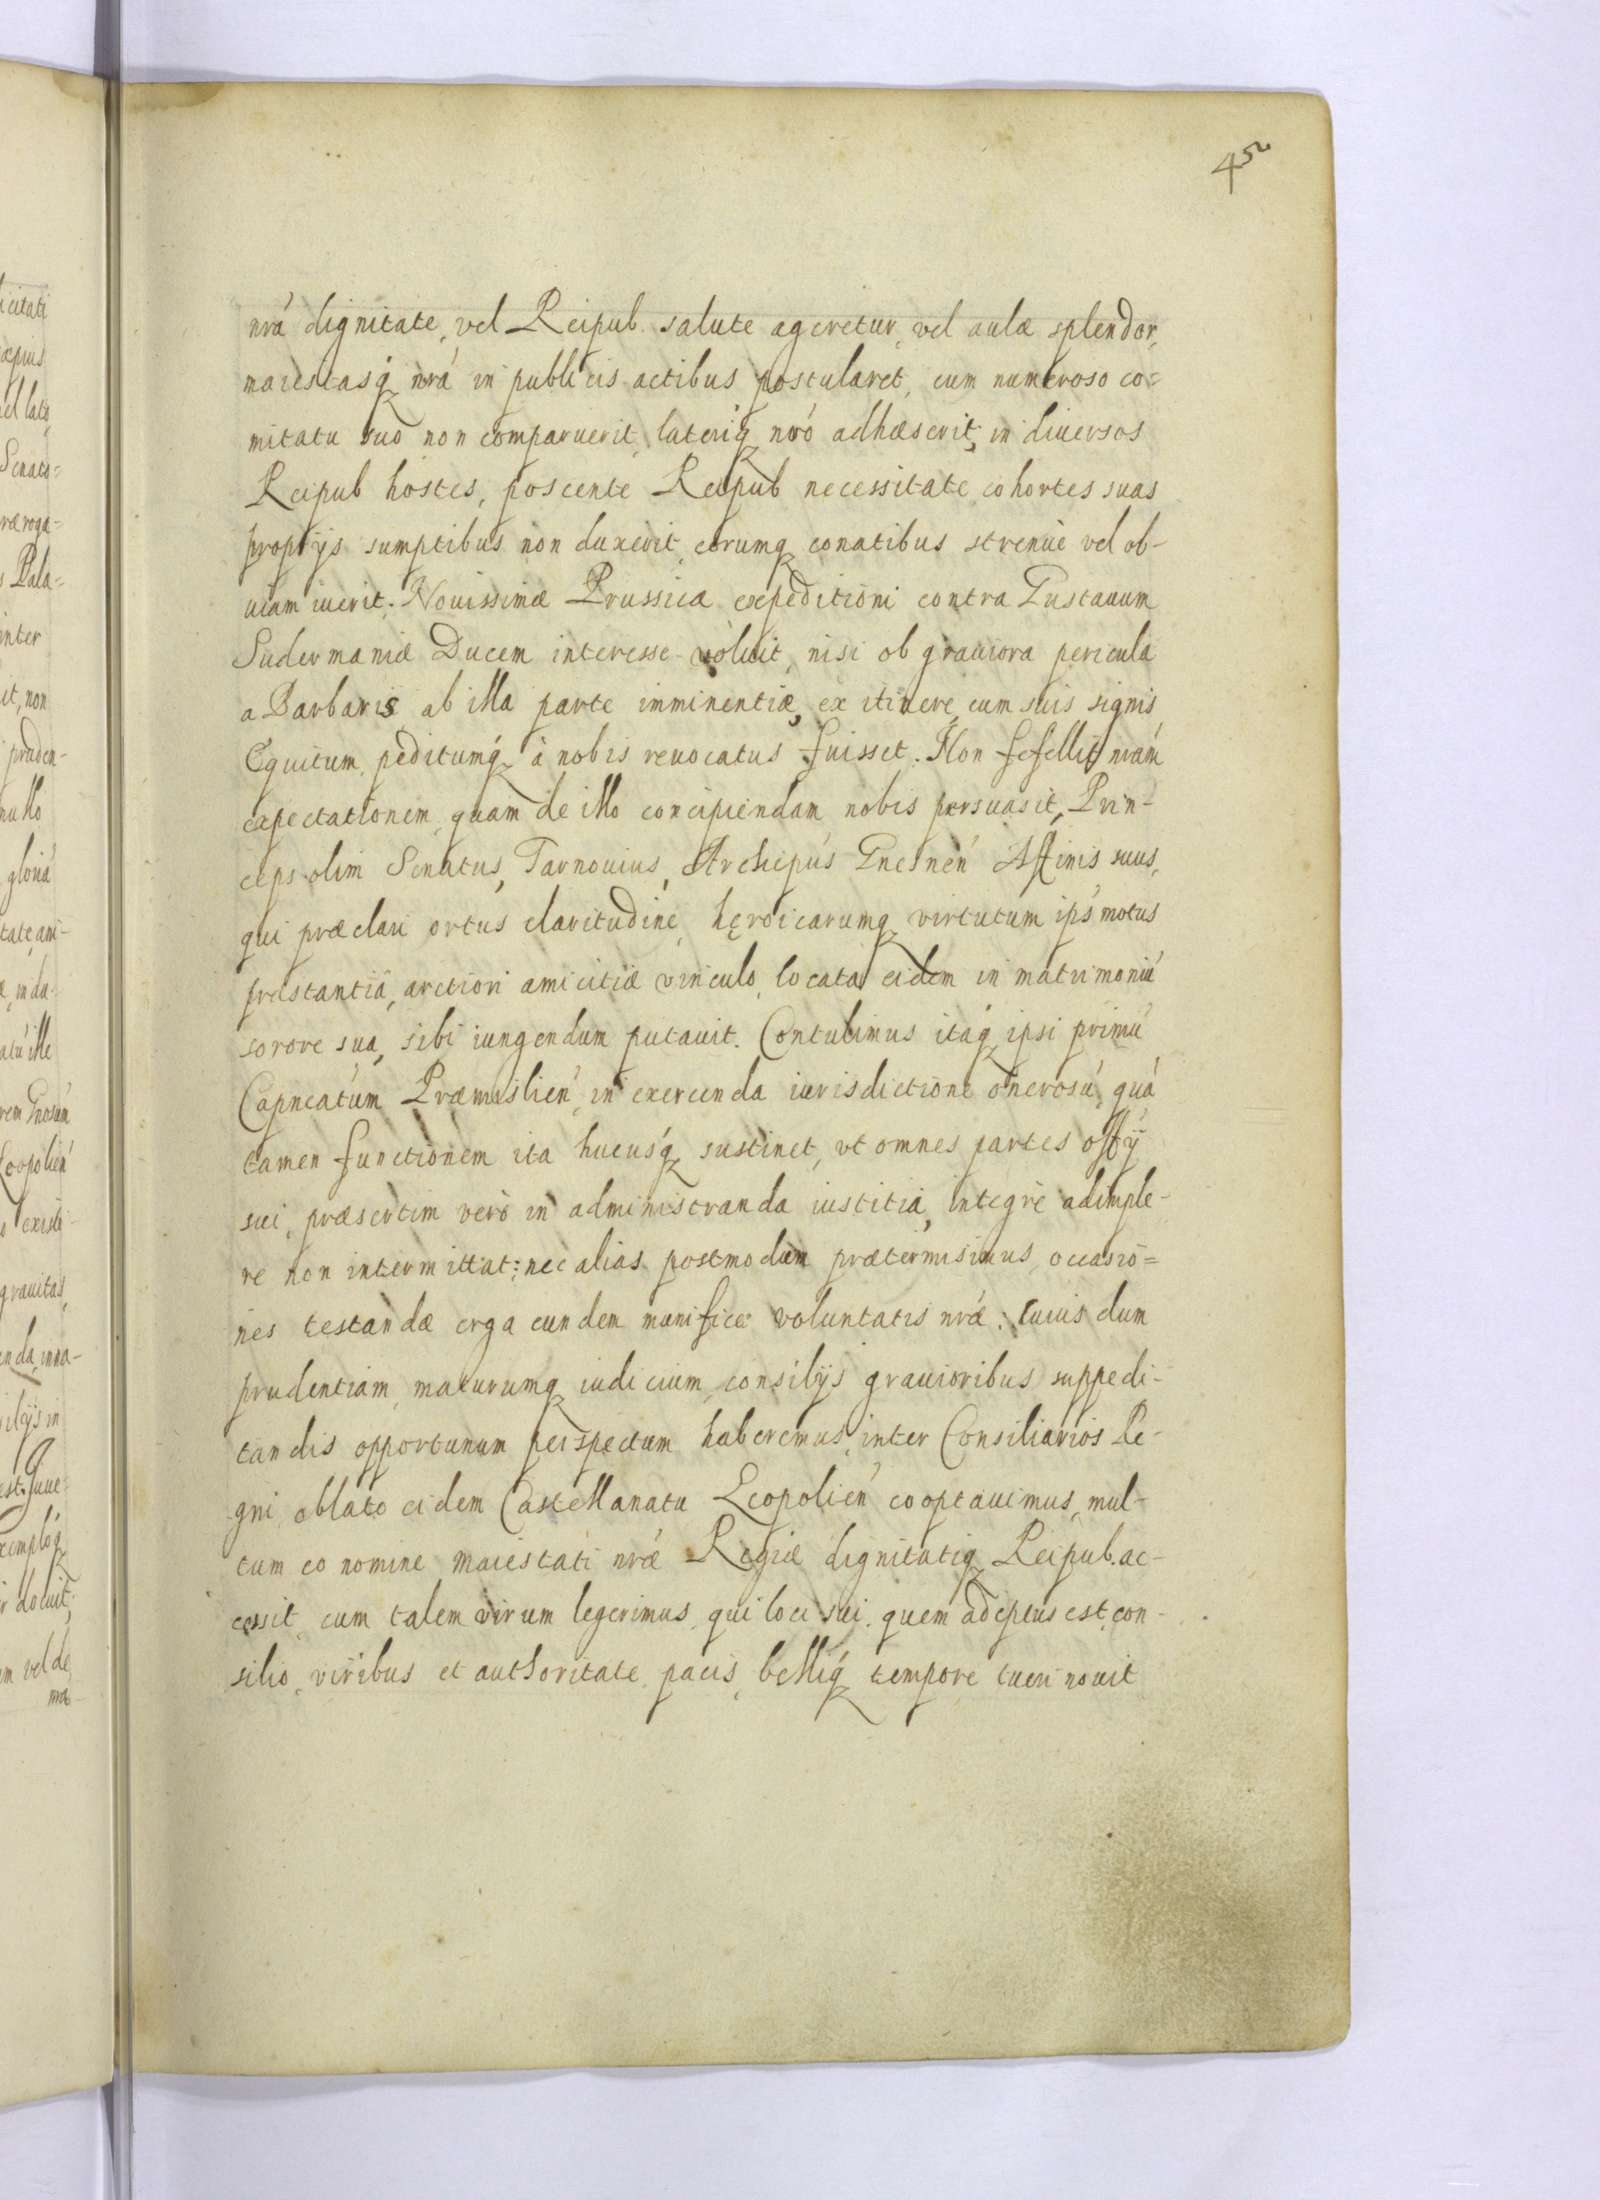 452
nrá dignitate, vel Reipub. salute ageretur, vel aulæ splendor,
maiestasq́ nrá in publicis actibus postularet, cum numeroso co=
mitatu suo non comparuerit, lateriq nró adhæserit, in diuersos
Reipub hostes, poscente Reipub necessitate cohortes suas
proprijs sumptibus non duxerit, eorumq conatibus strenùe vel ob-
uiam iuerit. Nouissimæ Prussicæ expeditioni contra Gustauum
Sudermaniæ Ducem interesse voluit, nisi ob grauiora pericula
a Barbaris ab illa parte imminentia, ex itinere, cum suis signis
Equitum, peditumq́ à nobis reuocatus fuisset. Non fefellit nrám
expectationem, quam de illo concipiendam nobis persuasit, Prin-
ceps olim Senatus, Tarnouius, Archiepús Gnesnén Affinis suus,
qui præclari ortus claritudine, hęroicarumq virtutum ipś motus
præstantiâ, arctiori amicitiæ vinculo, locata eidem in matrimoniú
sorore sua, sibi iungendum putauit. Contulimus itaq́ ipsi primú
Capneatúm Præmislień, in exercenda iurisdictione onerosú, quá
tamen functionem ita hucusq́ sustinet, vt omnes partes offÿ
sui, præsertim verò in administranda iustitiâ, integrè adimple-
re non intermittat: nec alias postmodum prætermisimus, occasio=
nes testandæ erga eundem munificæ voluntatis nræ: cuius dum
prudentiam, maturumq iudicium, consilijs grauioribus suppedi-
tandis opportunum perspectum haberemus, inter Consiliarios Re-
gni, oblato eidem Castellanatu Leopolień cooptauimus, mul-
tum eo nomine Maiestati nræ Regiæ dignitatiq Reipub. ac-
cessit, cum talem virum legerimus, qui loci sui, quem adeptus est, con-
silio, viribus et authoritate, pacis, belliq́ tempore tueri nouit